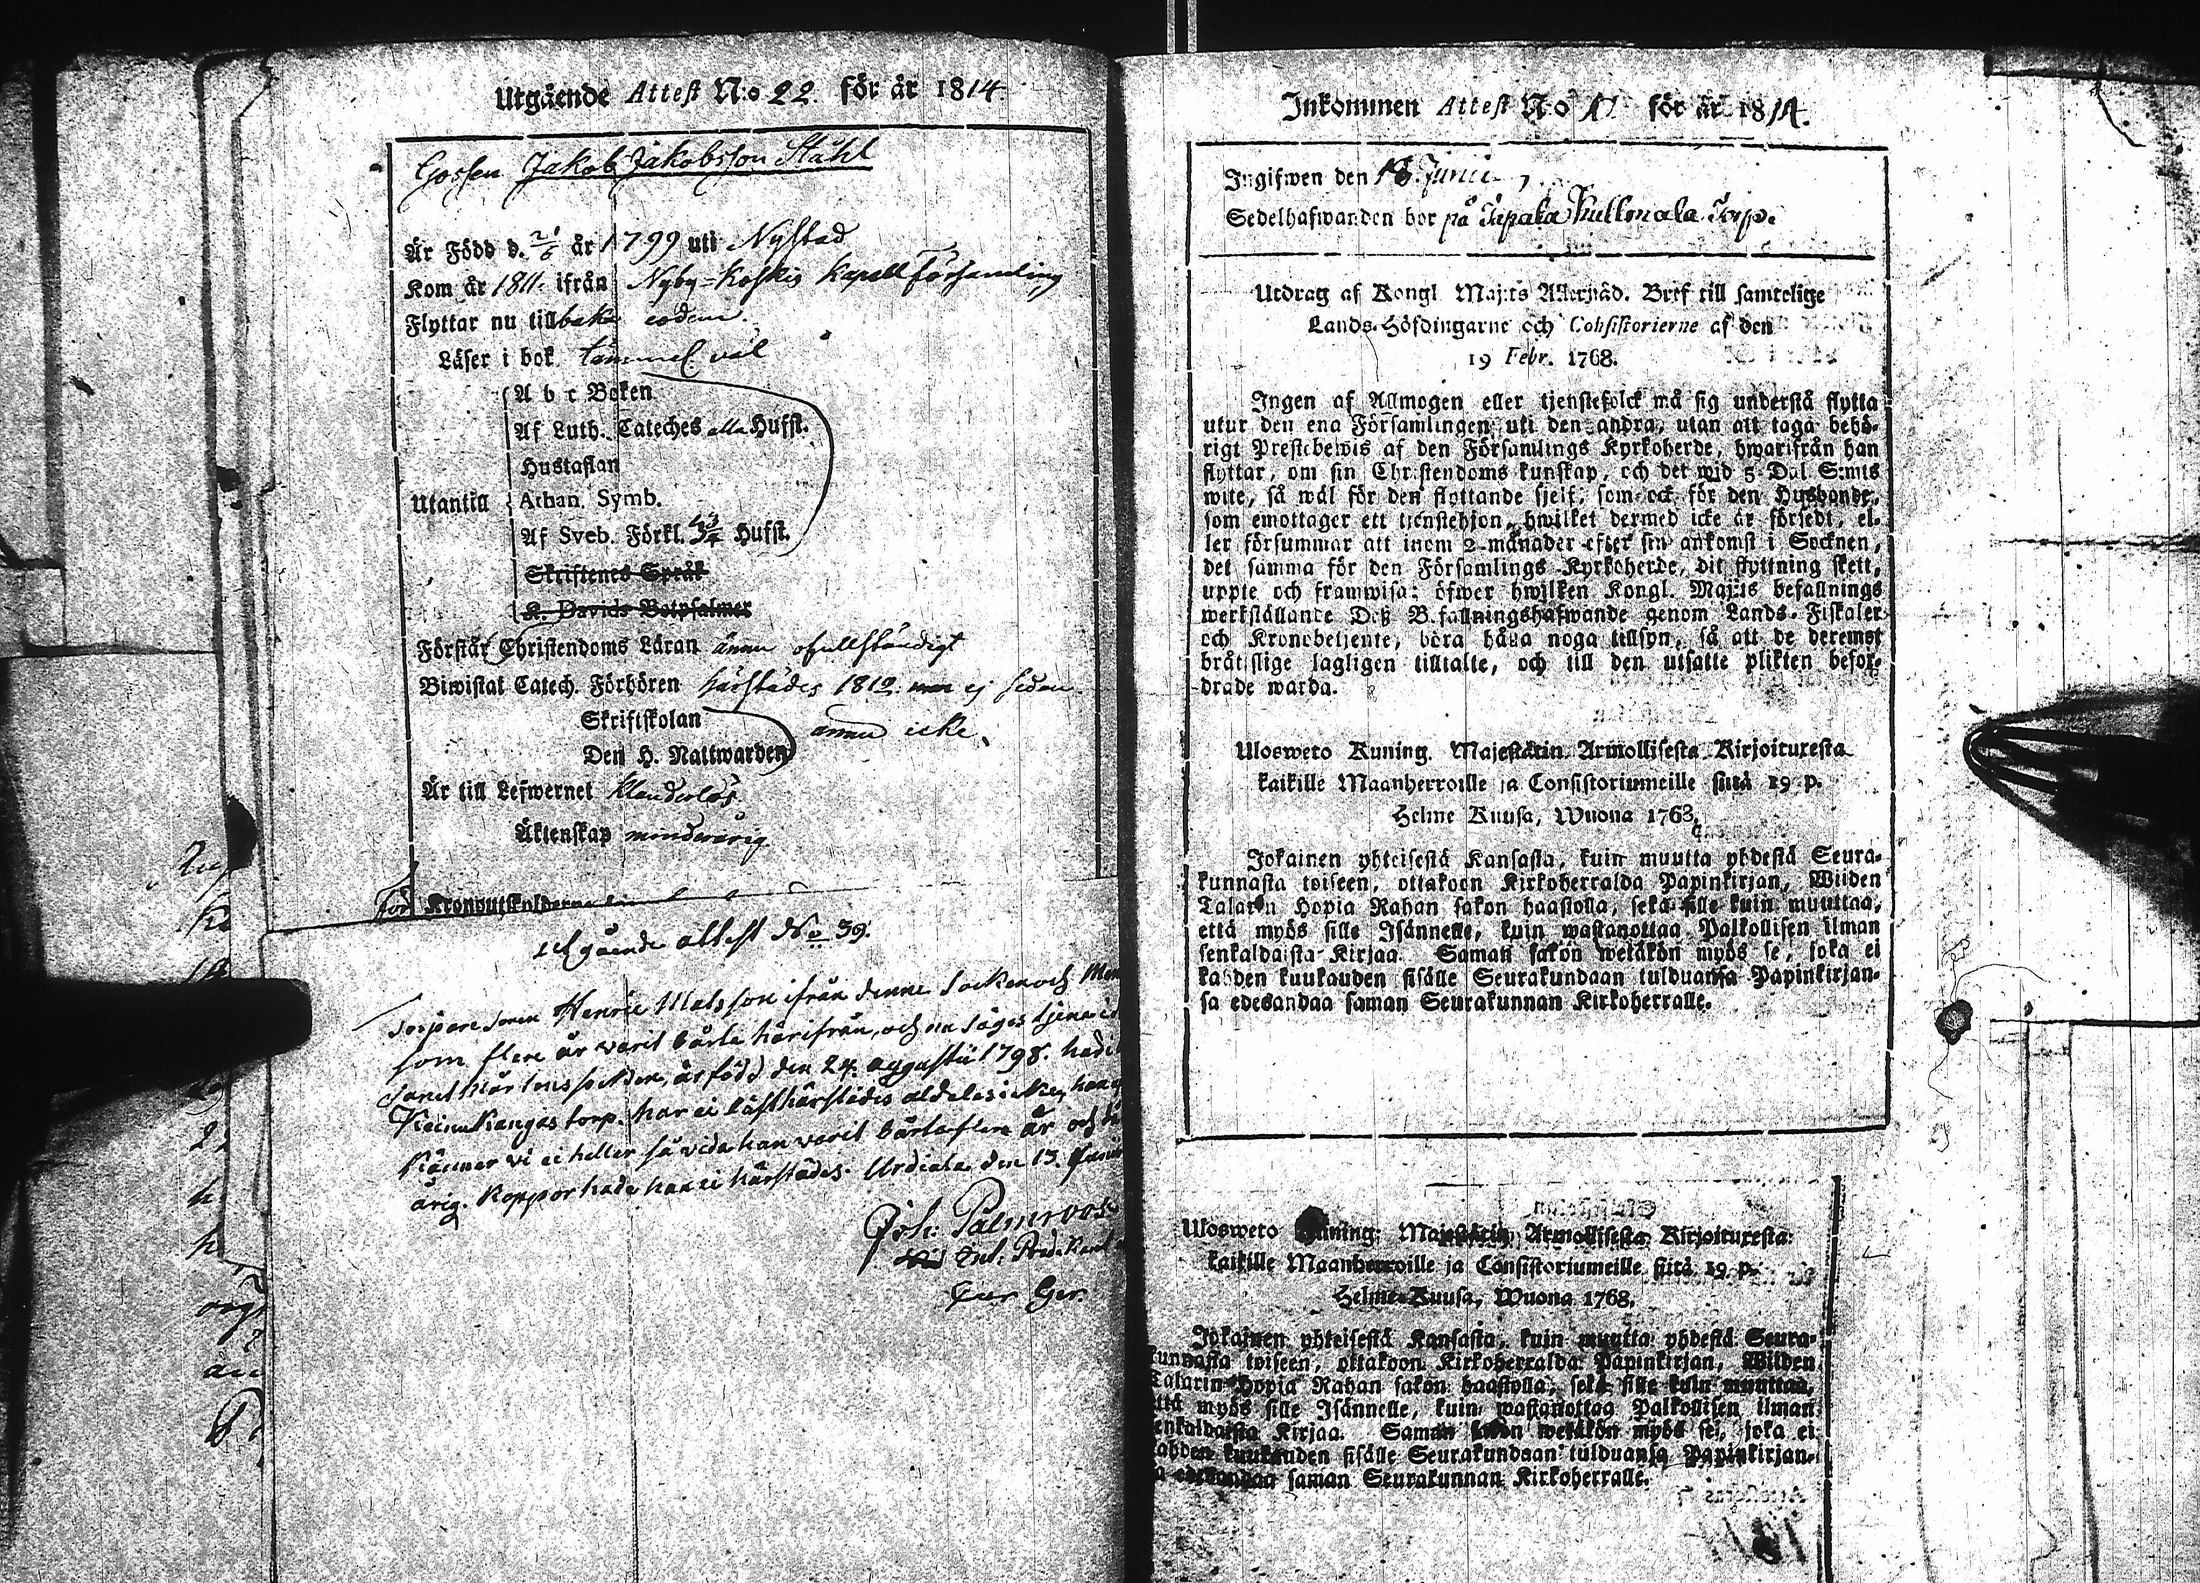 Utgående Attest N:o 22. för år 1814.
Gossen Jakob Jakobsson Ståhl
Är Född d. 21/6 år 1799 uti Nystad
Kom år 1811. ifrån Nyby=Koskis Kapellförsamling
Flyttar nu tillbaka eodem.
Läser i bok tämmel. väl
A b c Boken
Af Luth. Cateches alla Hufst.
Hustaflan
Utantill Athan. Symb.
Af Sveb. Förkl. Hufst.
Skriftenes Språk
K. Davids Botpsalmer
Förstår Christendoms Läran ännu ofullständigt
Biwistat Catech. Förhören härstädes 1812. men ej sedan.
Skriftskolan
ännu icke.
Den H. Nattwarden
Är till Lefwernet Klanderlös.
Äktenskap minderårig.
För Kronoutskylderna
utgående attest No 39.
Torpare sonen Henric Matsson ifrån denne Socken och
som flere år varit bårta härifrån, och nu säges tjena i
Sanct Mårtens socken, är född den 24. augustii 1798.
Keinu Kangas torp. har ei läst härstädes aldeles icke,
Känner vi ei heller så vida han varit bårta flere år och
årig. Koppor hade han ei härstädes. Urdiala den 13. Junii
Joh: Palmroos
Past: Ger.
Inkommen Attest N:o för år 1814.
Ingifwen den 18. Junii
Sedelhafwanden bor på Kullmala Torp.
Utdrag af Kongl. Maj:ts Allernåd. Bref till samtelige
Lands-Höfdingarne och Consistorierne af den
19 Febr. 1768.
Ingen af Allmogen eller tjenstefolck må sig understå flytta
utur den ena Församlingen uti den andra, utan att taga behö-
rigt Prestebewis af den Församlings Kyrkoherde, hwarifrån han
flyttar, om sin Christendoms kunskap, och det wid 5 Dal. S:mts
wite, så wäl för den flyttande sjelf, som ock för den Husbonde,
som emottager ett tjenstehjon, hwilket dermed icke är försedt, el-
ler försummar att inom 2 månader efter sin ankomst i Socknen,
det samma för den Församlings Kyrkoherde, dit flyttning skett,
uppte och framwisa: öfwer hwilken Kongl. Maj:ts befallnings
werkställande Deß Befallningshafwande genom Lands-Fiskaler
och Kronobetjente, böra hålla noga tillsyn, så att de deremot
bråtslige lagligen tilltalte, och till den utsatte plikten befor-
drade warda.
Ulosweto Kuning. Majestätin Armollisesta Kirjoituxesta
kaikille Maanherroille ja Consistoriumeille siitä 19 p.
Helme Kuusa, Wuona 1768.
Jokainen yhteisestä Kansasta, kuin muutta yhdestä Seura-
kunnasta toiseen, ottakoon Kirkoherralda Papinkirjan, Wiiden
Talarin Hopia Rahan sakon haastolla, sekä sille kuin muuttaa,
että myös sille Isännelle, kuin wastanottaa Palkollisen ilman
senkaldaista Kirjaa. Saman sakon wetäkön myös se, joka ei
kahden kuukauden sisälle Seurakundaan tulduansa Papinkirjan-
sa edesandaa saman Seurakunnan Kirkoherralle.
Ulosweto Kuning. Majestätin Armollisesta Kirjoituxesta
kaikille Maanherroille ja Consistoriumeille siitä 19. p.
Helme Kuusa, Wuona 1768.
Jokainen yhteisestä Kansasta, kuin muutta yhdestä Seura-
kunnasta toiseen, ottakoon Kirkoherralda Papinkirjan, Wiiden
Talarin Hopia Rahan sakon haastolla, sekä sille kuin muuttaa,
että myös sille Isännelle, kuin wastanottaa Palkollisen ilman
senkaldaista Kirjaa. Saman sakon wetäkön myös se, joka ei
kahden kuukauden sisälle Seurakundaan tulduansa Papinkirjan-
sa edesandaa saman Seurakunnan Kirkoherralle.